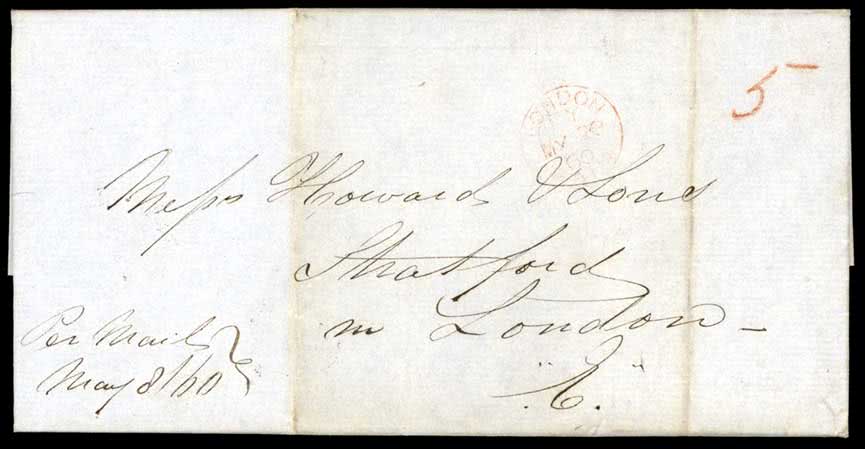 5
LONDON
MY 28
60
Messrs Howards & Sons
Stratford
nr London
"E."
Per Mail
May 8/60